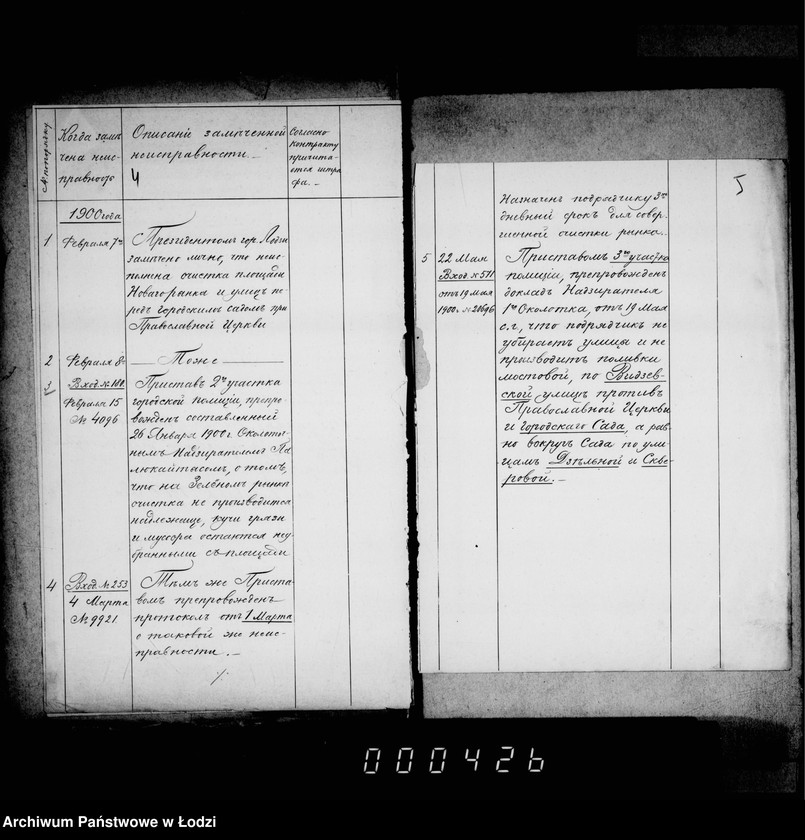 № по порядку
Когда замѣ-
чена неис-
правность
Описанiе замѣченной
неисправности. –
4
Согласно
контракту
причита-
ется штра-
фа. –
1900 года
1
Февраля 7го
Президентомъ гор. Лодзи
замѣчено лично, что неис-
полнена очистка площади
Новаго рынка и улицъ пе-
редъ городскимъ садомъ при
Православной Церкви
2
Февраля 8го
Тоже
3
Вход. № 188
Февраля 15
№ 4096
Приставъ 2го участка
городской полицiи, препро-
вожденъ составленный
26 Января 1900 г. Околоточ-
нымъ Надзирателемъ
о томъ,
что на Зелёномъ рынкѣ
очистка не производится
надлежаще, кучи грязи
и мусора остаются неу-
бранными съ площади
4
Вход. № 253
4 Марта
№ 9921
Тѣмъ же Приста-
вомъ препровожденъ
протоколъ отъ 1 Марта
о таковой же неис-
правности. –
5
Назначенъ подрядчику 3хъ
дневный срокъ для совер-
шенной очистки рынка. –
5
22 Мая
Вход. № 511
отъ 19 мая
1900 г. № 20696
Приставомъ 3го участка
полицiи, препровожденъ
докладъ Надзирателя
1го Околотка, отъ 19 Мая
с.г., что подрядчикъ не
убираетъ улицъ и не
производитъ поливки
мостовой, по Видзев-
ской улицѣ противъ
Православной Церкви
и Городскаго Сада, а рав-
но вокругъ Сада по ули-
цамъ Дзѣльной и Скве-
ровой. –
000426
Archiwum Państwowe w Łodzi